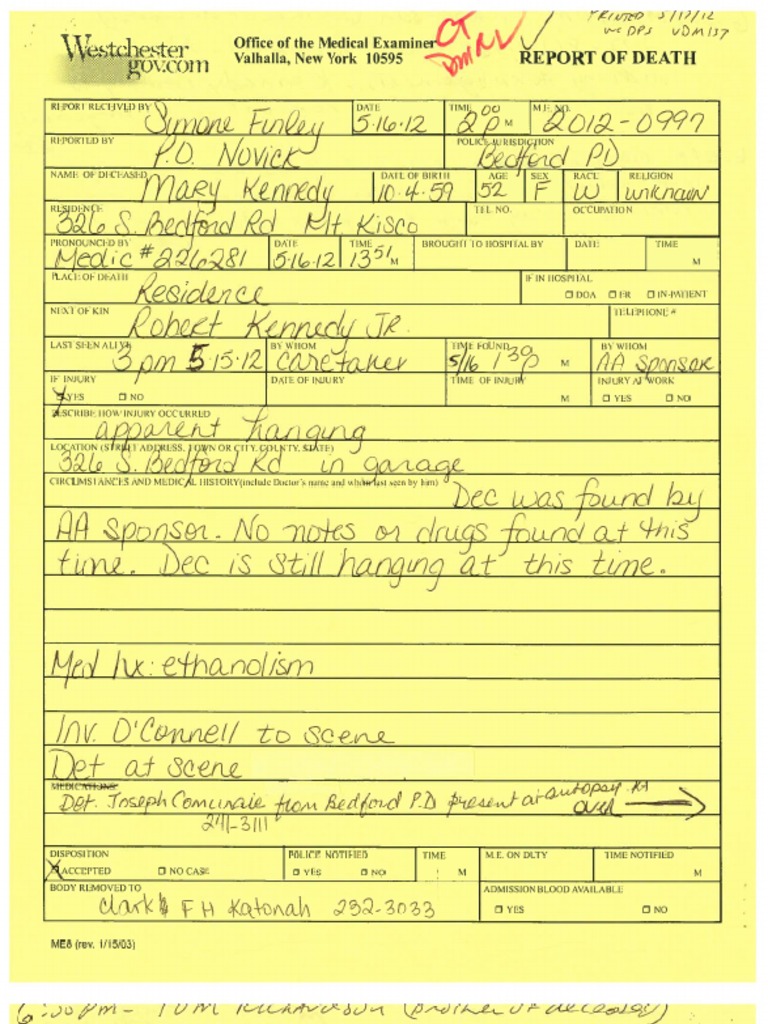 Westchester
gov.com
Office of the Medical Examiner
Valhalla, New York 10595
REPORT OF DEATH
PRINTED 5/17/12
WCDPS UDM157
CT
REPORT RECEIVED BY Simone Finley DATE 5·16·12 TIME 2 00 p M M.E. NO. 2012-0997
REPORTED BY P.O. Novick POLICE JURISDICTION Bedford PD
NAME OF DECEASED Mary Kennedy DATE OF BIRTH 10·4·59 AGE 52 SEX F RACE W RELIGION unknown
RESIDENCE 326 S. Bedford Rd Mt Kisco TEL NO. OCCUPATION
PRONOUNCED BY Medic # 226281 DATE 5·16·12 TIME 13 51 M BROUGHT TO HOSPITAL BY DATE TIME M
PLACE OF DEATH Residence IF IN HOSPITAL DOA ER IN-PATIENT
NEXT OF KIN Robert Kennedy JR. TELEPHONE #
LAST SEEN ALIVE 3 pm 5·15·12 BY WHOM caretaker TIME FOUND 5/16 1 30 p M BY WHOM AA sponsor
IF INJURY YES NO DATE OF INJURY TIME OF INJURY M INJURY AT WORK YES NO
DESCRIBE HOW INJURY OCCURRED
apparent hanging
LOCATION (STREET ADDRESS, TOWN OR CITY, COUNTY, STATE)
326 S. Bedford Rd in garage
CIRCUMSTANCES AND MEDICAL HISTORY (include Doctor's name and when last seen by him) Dec was found by
AA sponsor. No notes or drugs found at this
time. Dec is still hanging at this time.
Med hx: ethanolism
Inv. O'Connell to scene
Det at scene
MEDICATIONS
Det. Joseph Comunale from Bedford P.D present at autopsy. KA
over
241-3111
DISPOSITION ACCEPTED NO CASE POLICE NOTIFIED YES NO TIME M M.E. ON DUTY TIME NOTIFIED M
BODY REMOVED TO Clark's F H Katonah 232-3033 ADMISSION BLOOD AVAILABLE YES NO
ME8 (rev. 1/15/03)
Tom Richardson (brother of deceased)